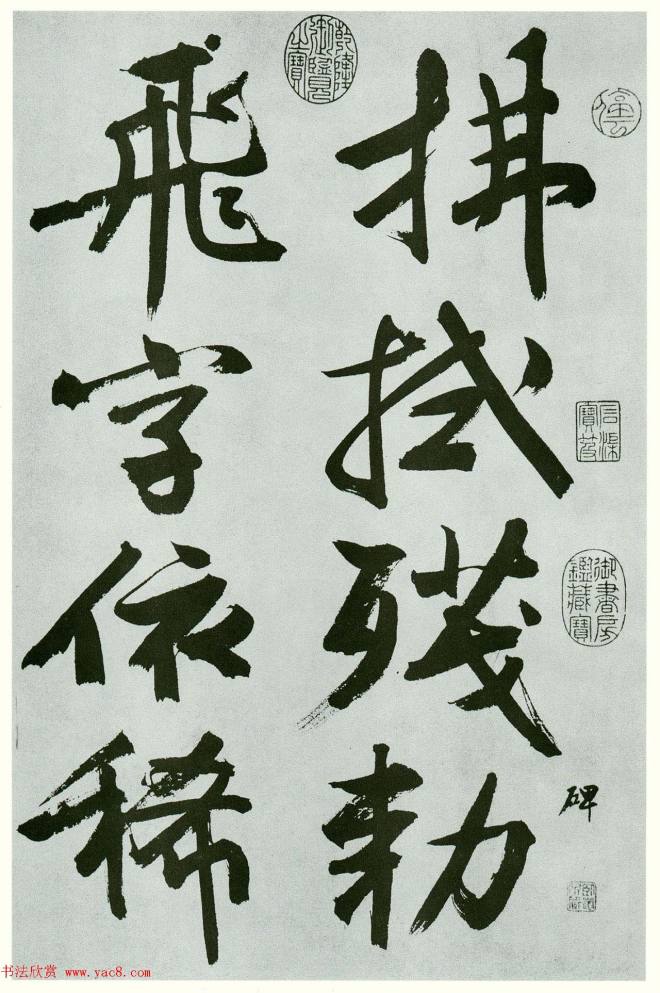 停雲
石渠寶笈
御書房鑑藏寶
碑
拂拭殘勅
乾隆御覽之寶
飛字依稀
书法欣赏 www.yac8.com